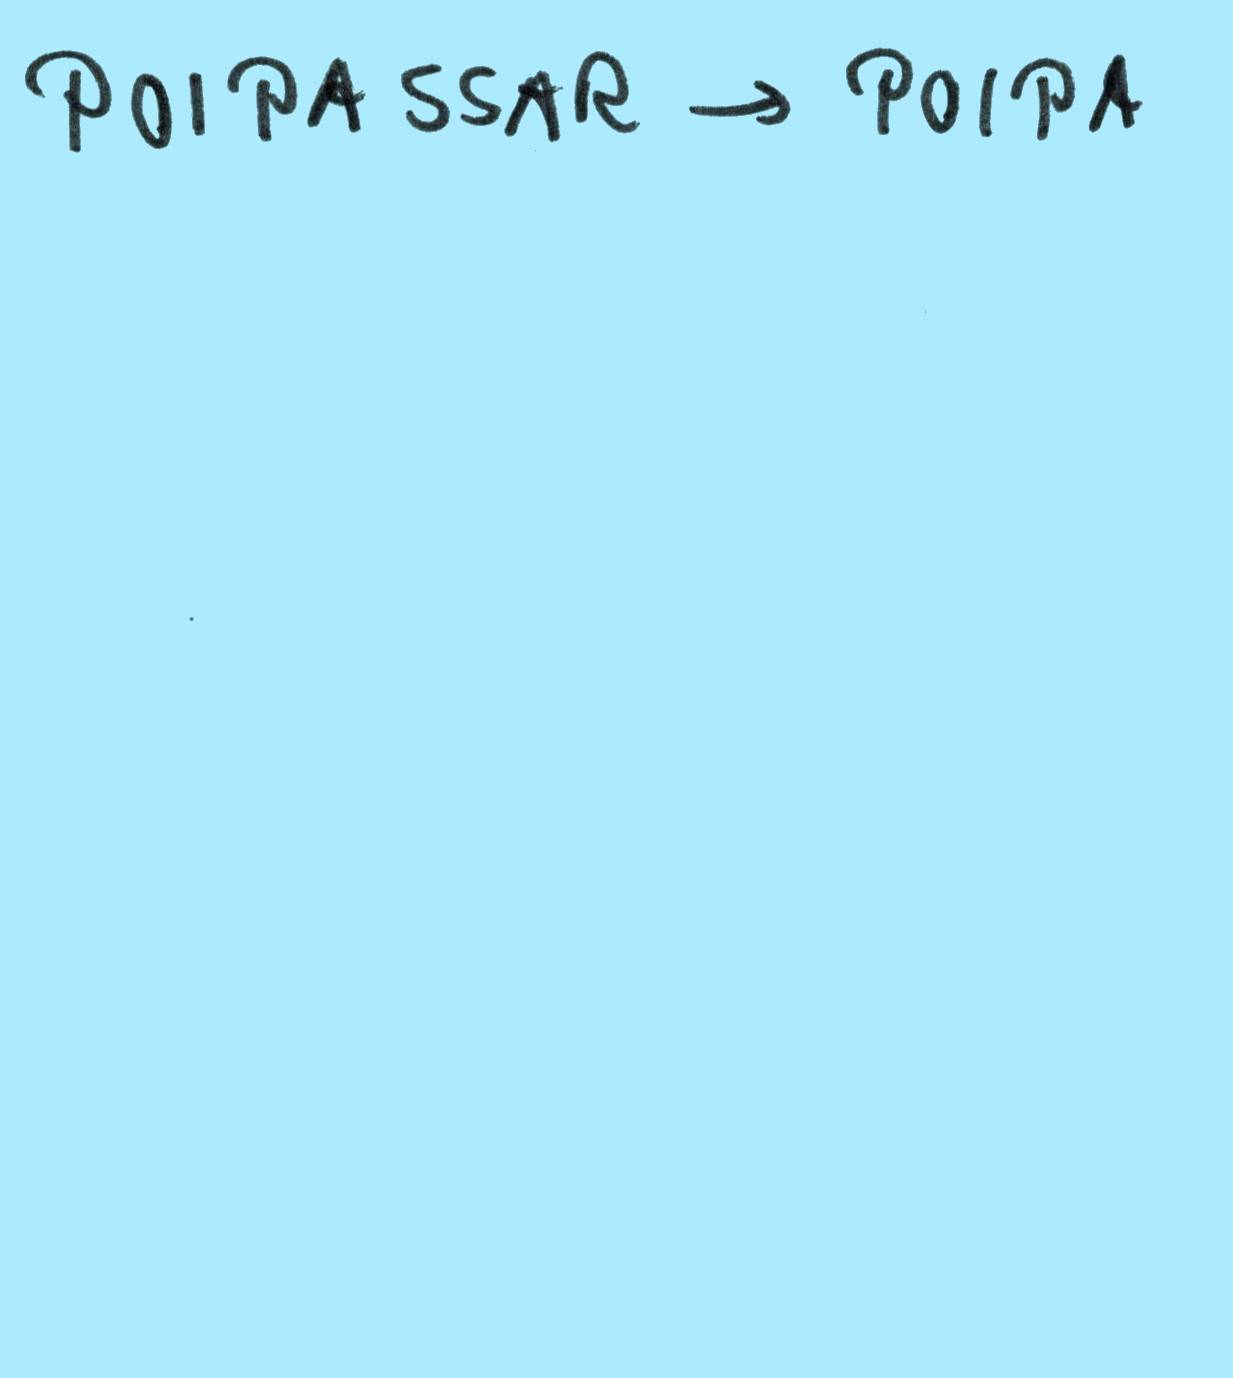 POIPASSAR → POIPA